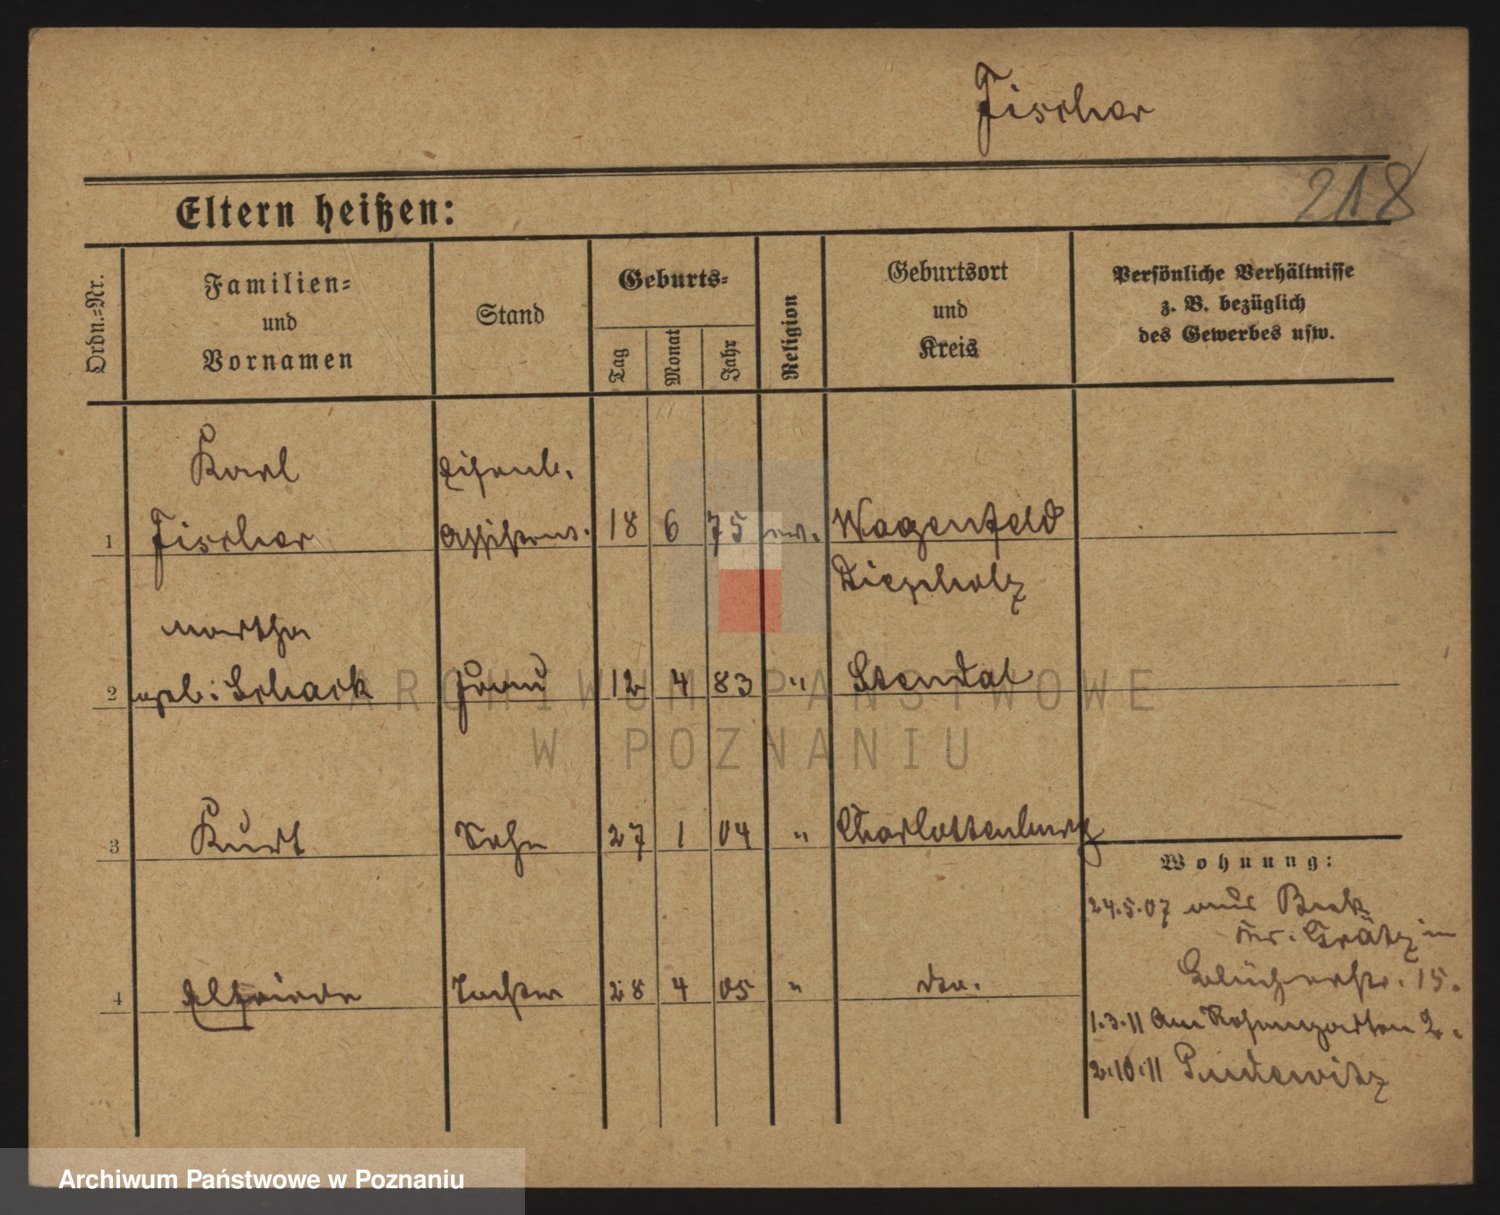 Fischer
218
Eltern heißen:
Ordn.-Nr.
Familien-
und
Vornamen
Stand
Geburts-
Tag
Monat
Jahr
Religion
Geburtsort
und
Kreis
Persönliche Verhältnisse
z. B. bezüglich
des Gewerbes usw.
Karl Eisenb.
1 Fischer Assistent. 18 6 75 ev. Wagenfeld
Diepholz
Martha
2 geb: Schack Frau 12 4 83 " Stendal
3 Kurt Sohn 27 1 04 " Charlottenburg
Wohnung:
24.5.07 aus Buk
Kr. Grätz in
Blücherstr. 15.
4 Elfriede Tochter 28 4 05 " do.
1.3.11 Am Rosengarten 2.
2.10.11 Pudewitz
ARCHIWUM PAŃSTWOWE
W POZNANIU
Archiwum Państwowe w Poznaniu